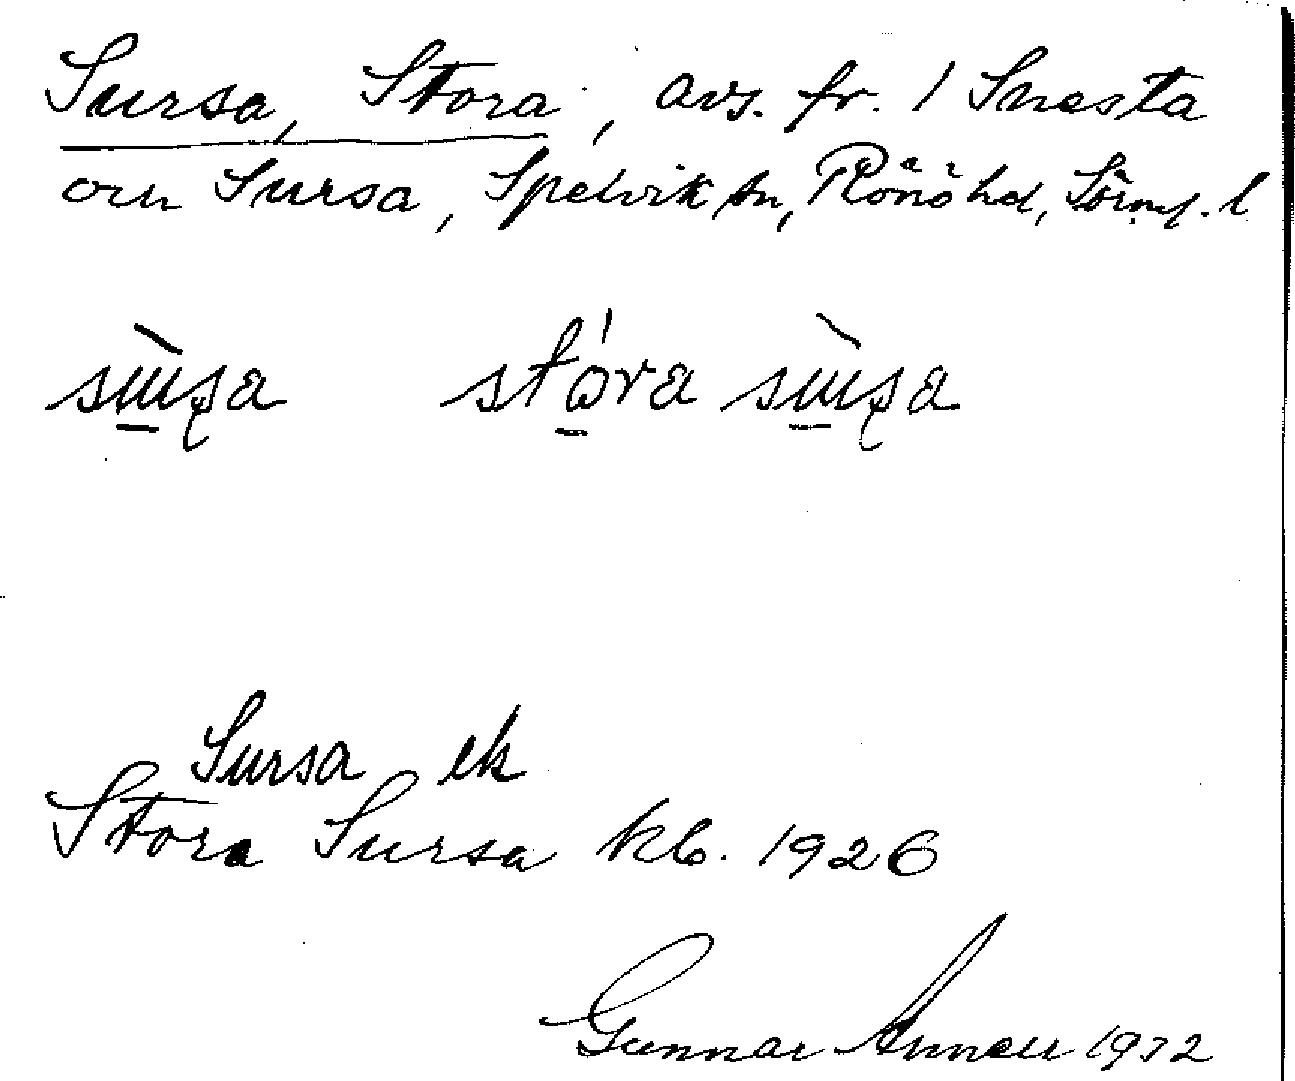 Sursa, Stora, avs. fr. 1 Snesta
och Sursa, Spelvik sn, Rönö hd, Sörml. l
Sursa ek
Stora Sursa kb. 1926
Gunnar Annell 1932